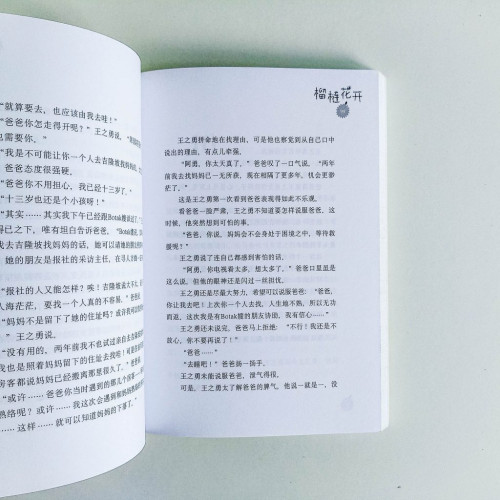 “就算要去，也应该由我去哇！”
“爸爸你怎么走得开呢？”王之勇说，
也需要你。”
“我是不可能让你一个人去吉隆坡找妈妈
爸爸态度很强硬。
“爸爸你不用担心，我已经十三岁了。”
“十三岁也还是个小孩呀！”
“其实……其实我下午已经跟Botak
得已之下，唯有坦白告诉爸爸，“Botak
我去吉隆坡找妈妈的话，她可以请她的
她的朋友是报社的采访主任，
“报社的人又能怎样？唉！吉隆
人海茫茫，要找一个人真的不容易。”爸爸
“妈妈不是留下了她的住址吗？或许
”王之勇说。
“没有用的，两年前我不也试过亲自去
我也是照着妈妈留下的住址去找啦！可是
房客都说妈妈已经搬离那里很久了。”爸爸
“或许……爸爸你当时遇到的那几个房客
熟络呢？或许……我这次会遇到和妈妈
……这样……就可以知道妈妈的下落了。”
榴梿花开
王之勇拼命地在找理由，可是他也察觉到从自己口中
说出的理由，有点儿牵强。
“阿勇，你太天真了，”爸爸叹了一口气说，“两年
前我去找妈妈已一无所获，现在相隔了更多年，机会更渺
茫了。”
这是王之勇第一次看到爸爸表现得如此不乐观。
看爸爸一脸严肃，王之勇不知道要怎样说服爸爸，这
时候，他突然想到一个可能性。
“爸爸，你说，妈妈会不会身处于困境之中，等待救
援呢？”
王之勇说了连自己都感到害怕的话。
“阿勇，你电视看太多，想太多了。”爸爸口里虽是
这么说，但他的眼神还是闪过一丝担忧。
王之勇还是尽最大努力，希望可以说服爸爸：“爸爸，
你让我去吧！上次你一个人去找，人生地不熟，所以无功
而返，这次我是有Botak貓的朋友协助，我有信心……”
王之勇还未说完，爸爸马上拒绝：“不行！我还是不
放心，你不要再说了！”
“爸爸……”
“去睡吧！”爸爸扬一扬手。
王之勇未能说服爸爸，泄气得很。
可是，王之勇太了解爸爸的脾气，他说一就是一，没